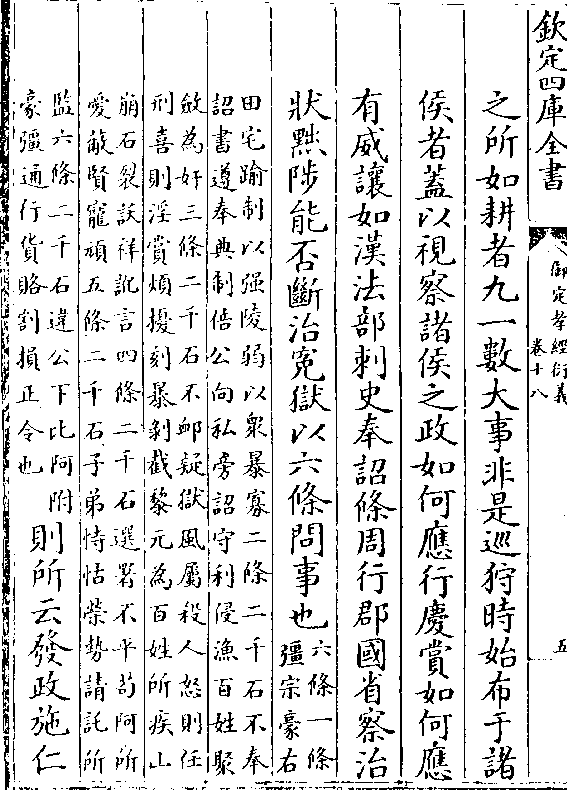 欽定四庫全書
御定孝經衍義
卷十八
五
之所如耕者九一數大事非是巡狩時始布于諸
侯者蓋以視察諸侯之政如何應行慶賞如何應
有威讓如漢法部刺史奉詔條周行郡國省察治
狀黜陟能否斷治寃獄以六條問事也
六條一條
彊宗豪右
田宅踰制以强陵弱以衆暴寡二條二千石不奉
詔書遵奉典制倍公向私旁詔守利侵漁百姓聚
斂為奸三條二千石不卹疑獄風屬殺人怒則任
刑喜則淫賞煩擾刻暴剝截黎元為百姓所疾山
崩石裂訞祥訛言四條二千石選署不平茍阿所
愛蔽賢寵頑五條二千石子弟恃怙榮勢請託所
監六條二千石違公下比阿附
豪彊通行貨賂割損正令也
則所云發政施仁